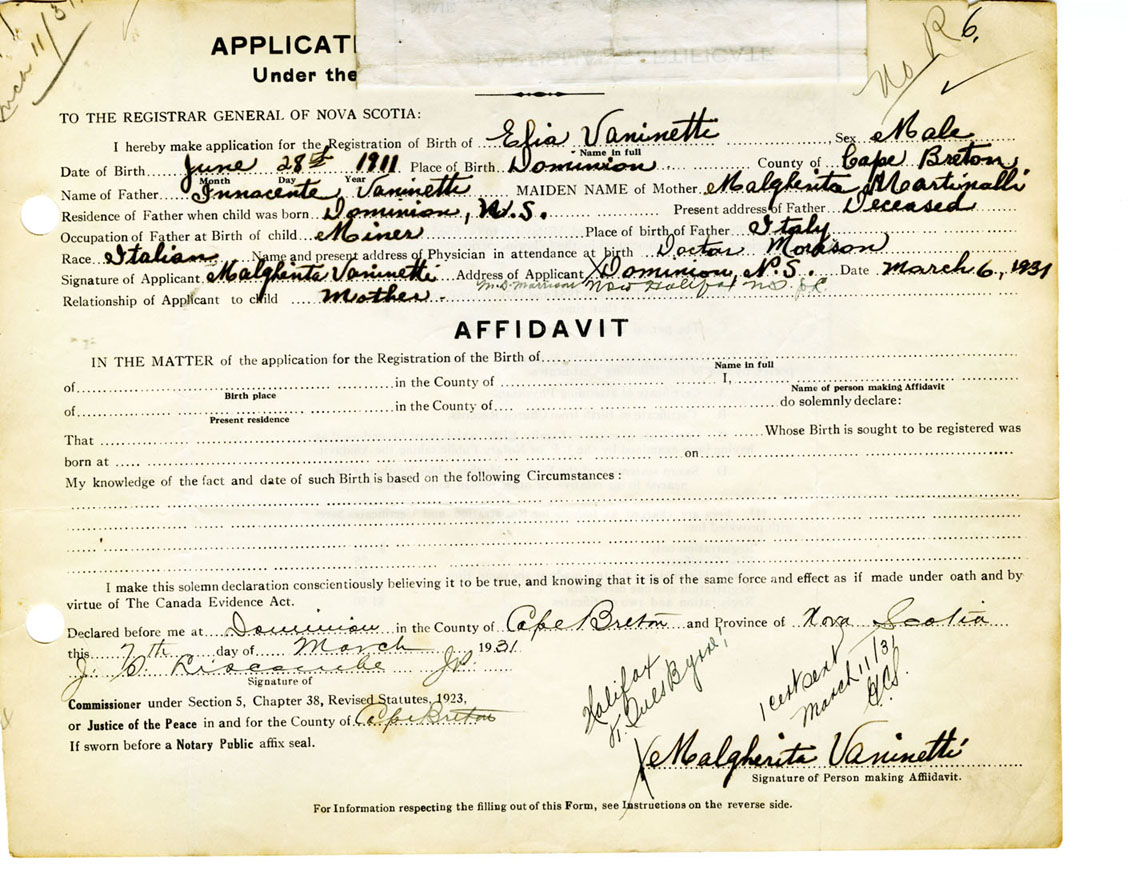 March 11/31
No R 6.
APPLICATI
Under the
TO THE REGISTRAR GENERAL OF NOVA SCOTIA:
I hereby make application for the Registration of Birth of Elia Vaninetti Sex Male
Name in full
Date of Birth June 28th 1911 Place of Birth Dominion County of Cape Breton
Month Day Year
Name of Father Innocente Vaninetti MAIDEN NAME of Mother Malgherita Martinalli
Residence of Father when child was born Dominion, N.S. Present address of Father Deceased
Occupation of Father at Birth of child Miner Place of birth of Father Italy
Race Italian Name and present address of Physician in attendance at birth Doctor Morison
Signature of Applicant Malgherita Vaninetti Address of Applicant X Dominion, N.S. Date March 6, 1931
Relationship of Applicant to child Mother - M.D. Morrison Now Halifax NS
AFFIDAVIT
IN THE MATTER of the application for the Registration of the Birth of
Name in full
of in the County of I,
Birth place Name of person making Affidavit
of in the County of do solemnly declare:
Present residence
That Whose Birth is sought to be registered was
born at on
My knowledge of the fact and date of such Birth is based on the following Circumstances:
I make this solemn declaration conscientiously believing it to be true, and knowing that it is of the same force and effect as if made under oath and by
virtue of The Canada Evidence Act.
Declared before me at Dominion in the County of Cape Breton and Province of Nova Scotia
this 7th day of March 1931
J.P.
Signature of
Commissioner under Section 5, Chapter 38, Revised Statutes, 1923,
or Justice of the Peace in and for the County of Cape Breton
If sworn before a Notary Public affix seal.
Halifax
1 cert sent
March 11/31
X Malgherita Vaninetti
Signature of Person making Affidavit.
For Information respecting the filling out of this Form, see Instructions on the reverse side.